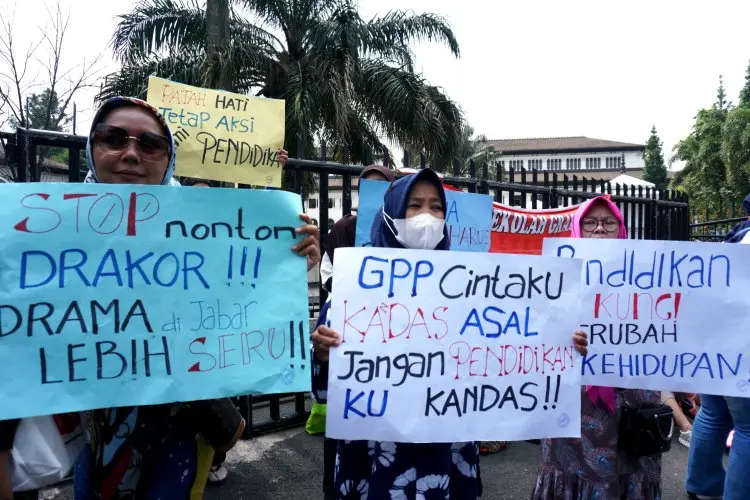 PATAH HATI
TETAP AKSI
PENDIDIKA
STOP nonton
DRAKOR !!!
DRAMA di Jabar
LEBIH SERU!!
GPP Cintaku
KADAS ASAL
Jangan PENDIDIKAN
KU KANDAS!!
SEKOLAH GRA
NDIDIKAN
KUNGI
RUBAH
KEHIDUPAN